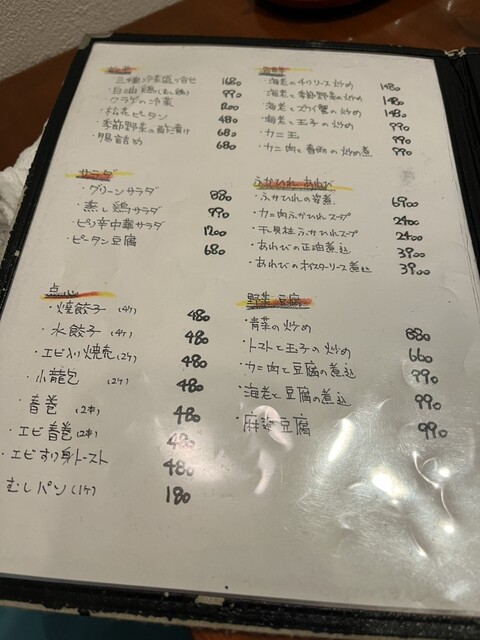 前菜
・三種冷菜盛り合せ 1680
・白油鶏(むし鶏) 990
・クラゲの冷菜 1200
・松花ピータン 480
・季節野菜の酢漬け 680
・腸詰め 680
サラダ
・グリーンサラダ 880
・蒸し鶏サラダ 990
・ピリ辛中華サラダ 1200
・ピータン豆腐 680
点心
・焼餃子(4ケ) 480
・水餃子(4ケ) 480
・エビ入り焼売(2ケ) 480
・小籠包(2ケ) 480
・春巻(2本) 480
・エビ春巻(2本) 480
・エビすり身トースト 480
むしパン(1ケ) 180
・海老のチリソース炒め 1480
・海老と季節野菜の炒め 1480
・海老とズワイ蟹の炒め 1480
・海老と玉子の炒め 990
・カニ玉 990
・カニ肉と春雨の炒め煮 990
ふかひれ あわび
・ふかひれの姿煮 6900
・カニ肉ふかひれスープ 2400
・干貝柱ふかひれスープ 2400
・あわびの正油煮込 3900
・あわびのオイスターソース煮込 3900
野菜 豆腐
・青菜の炒め 880
・トマトと玉子の炒め 660
・カニ肉と豆腐の煮込 990
・海老と豆腐の煮込 990
・麻婆豆腐 990